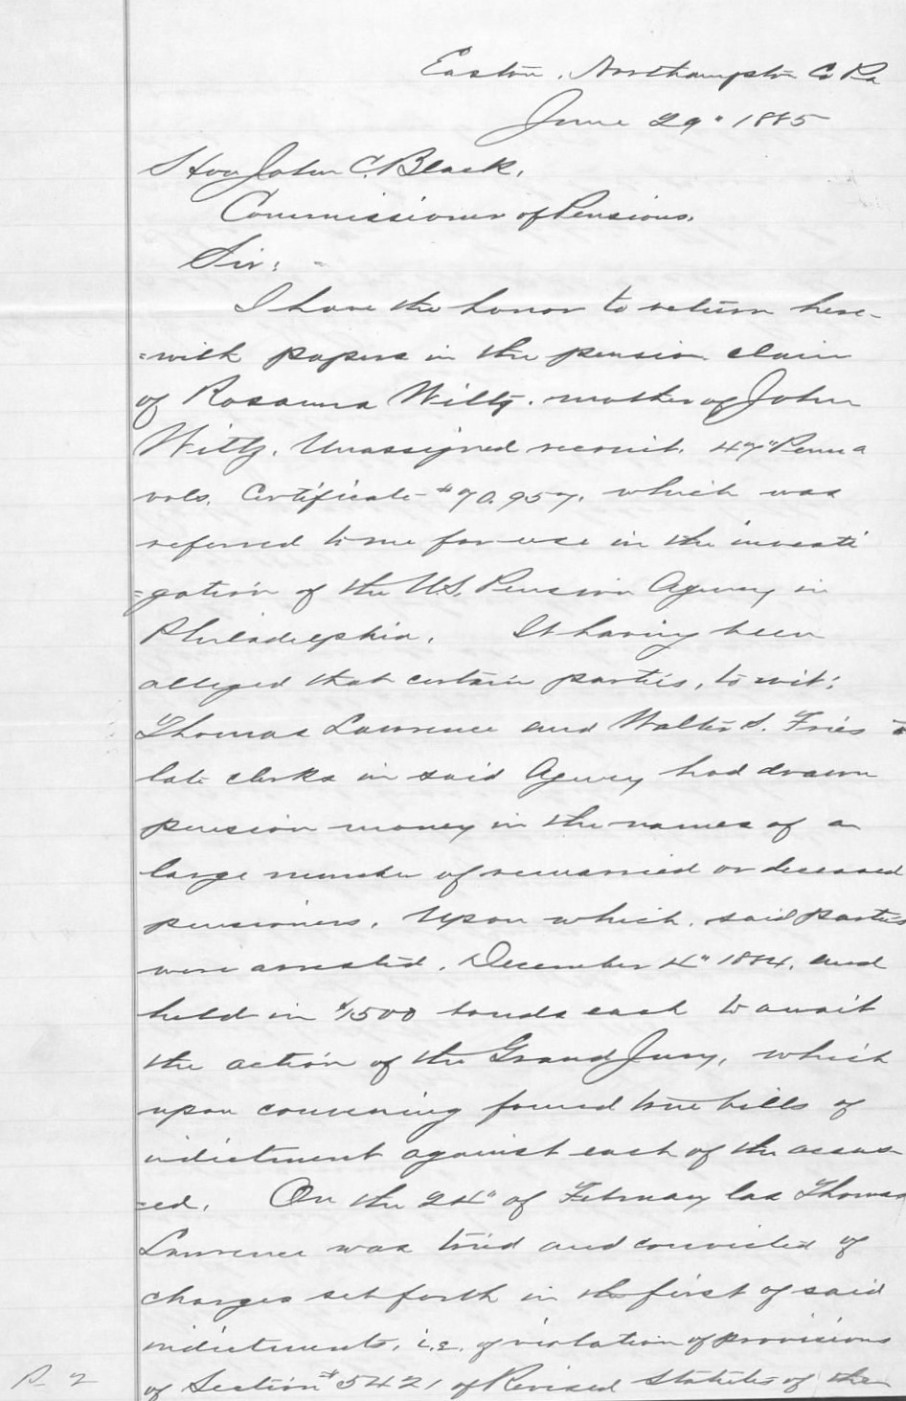 Easton, Northampton Co Pa
June 29" 1885
Hon John C. Black,
Commissioner of Pensions.
Sir:
I have the honor to return here-
-with papers in the pension claim
of Rosanna Wiltz, mother of John
Wiltz, Unassigned recruit, 47" Penna
vols. Certificate #70.957, which was
referred to me for use in the investi
-gation of the U.S. Pension Agency in
Philadelphia. It having been
alleged that certain parties, to wit:
Thomas Lawrence and Walter S. Fries
late clerks in said Agency had drawn
pension money in the names of a
large number of remarried or deceased
pensioners. Upon which, said parties
were arrested, December 4" 1884, and
held in $1500 bonds each to await
the action of the Grand Jury, which
upon convening found true bills of
indictment against each of the accus-
-ed. On the 24" of February las Thomas
Lawrence was tried and convicted of
charges set forth in the first of said
indictments, i.e. of violation of provisions
of Section #5421 of Revised Statutes of the
P. 2